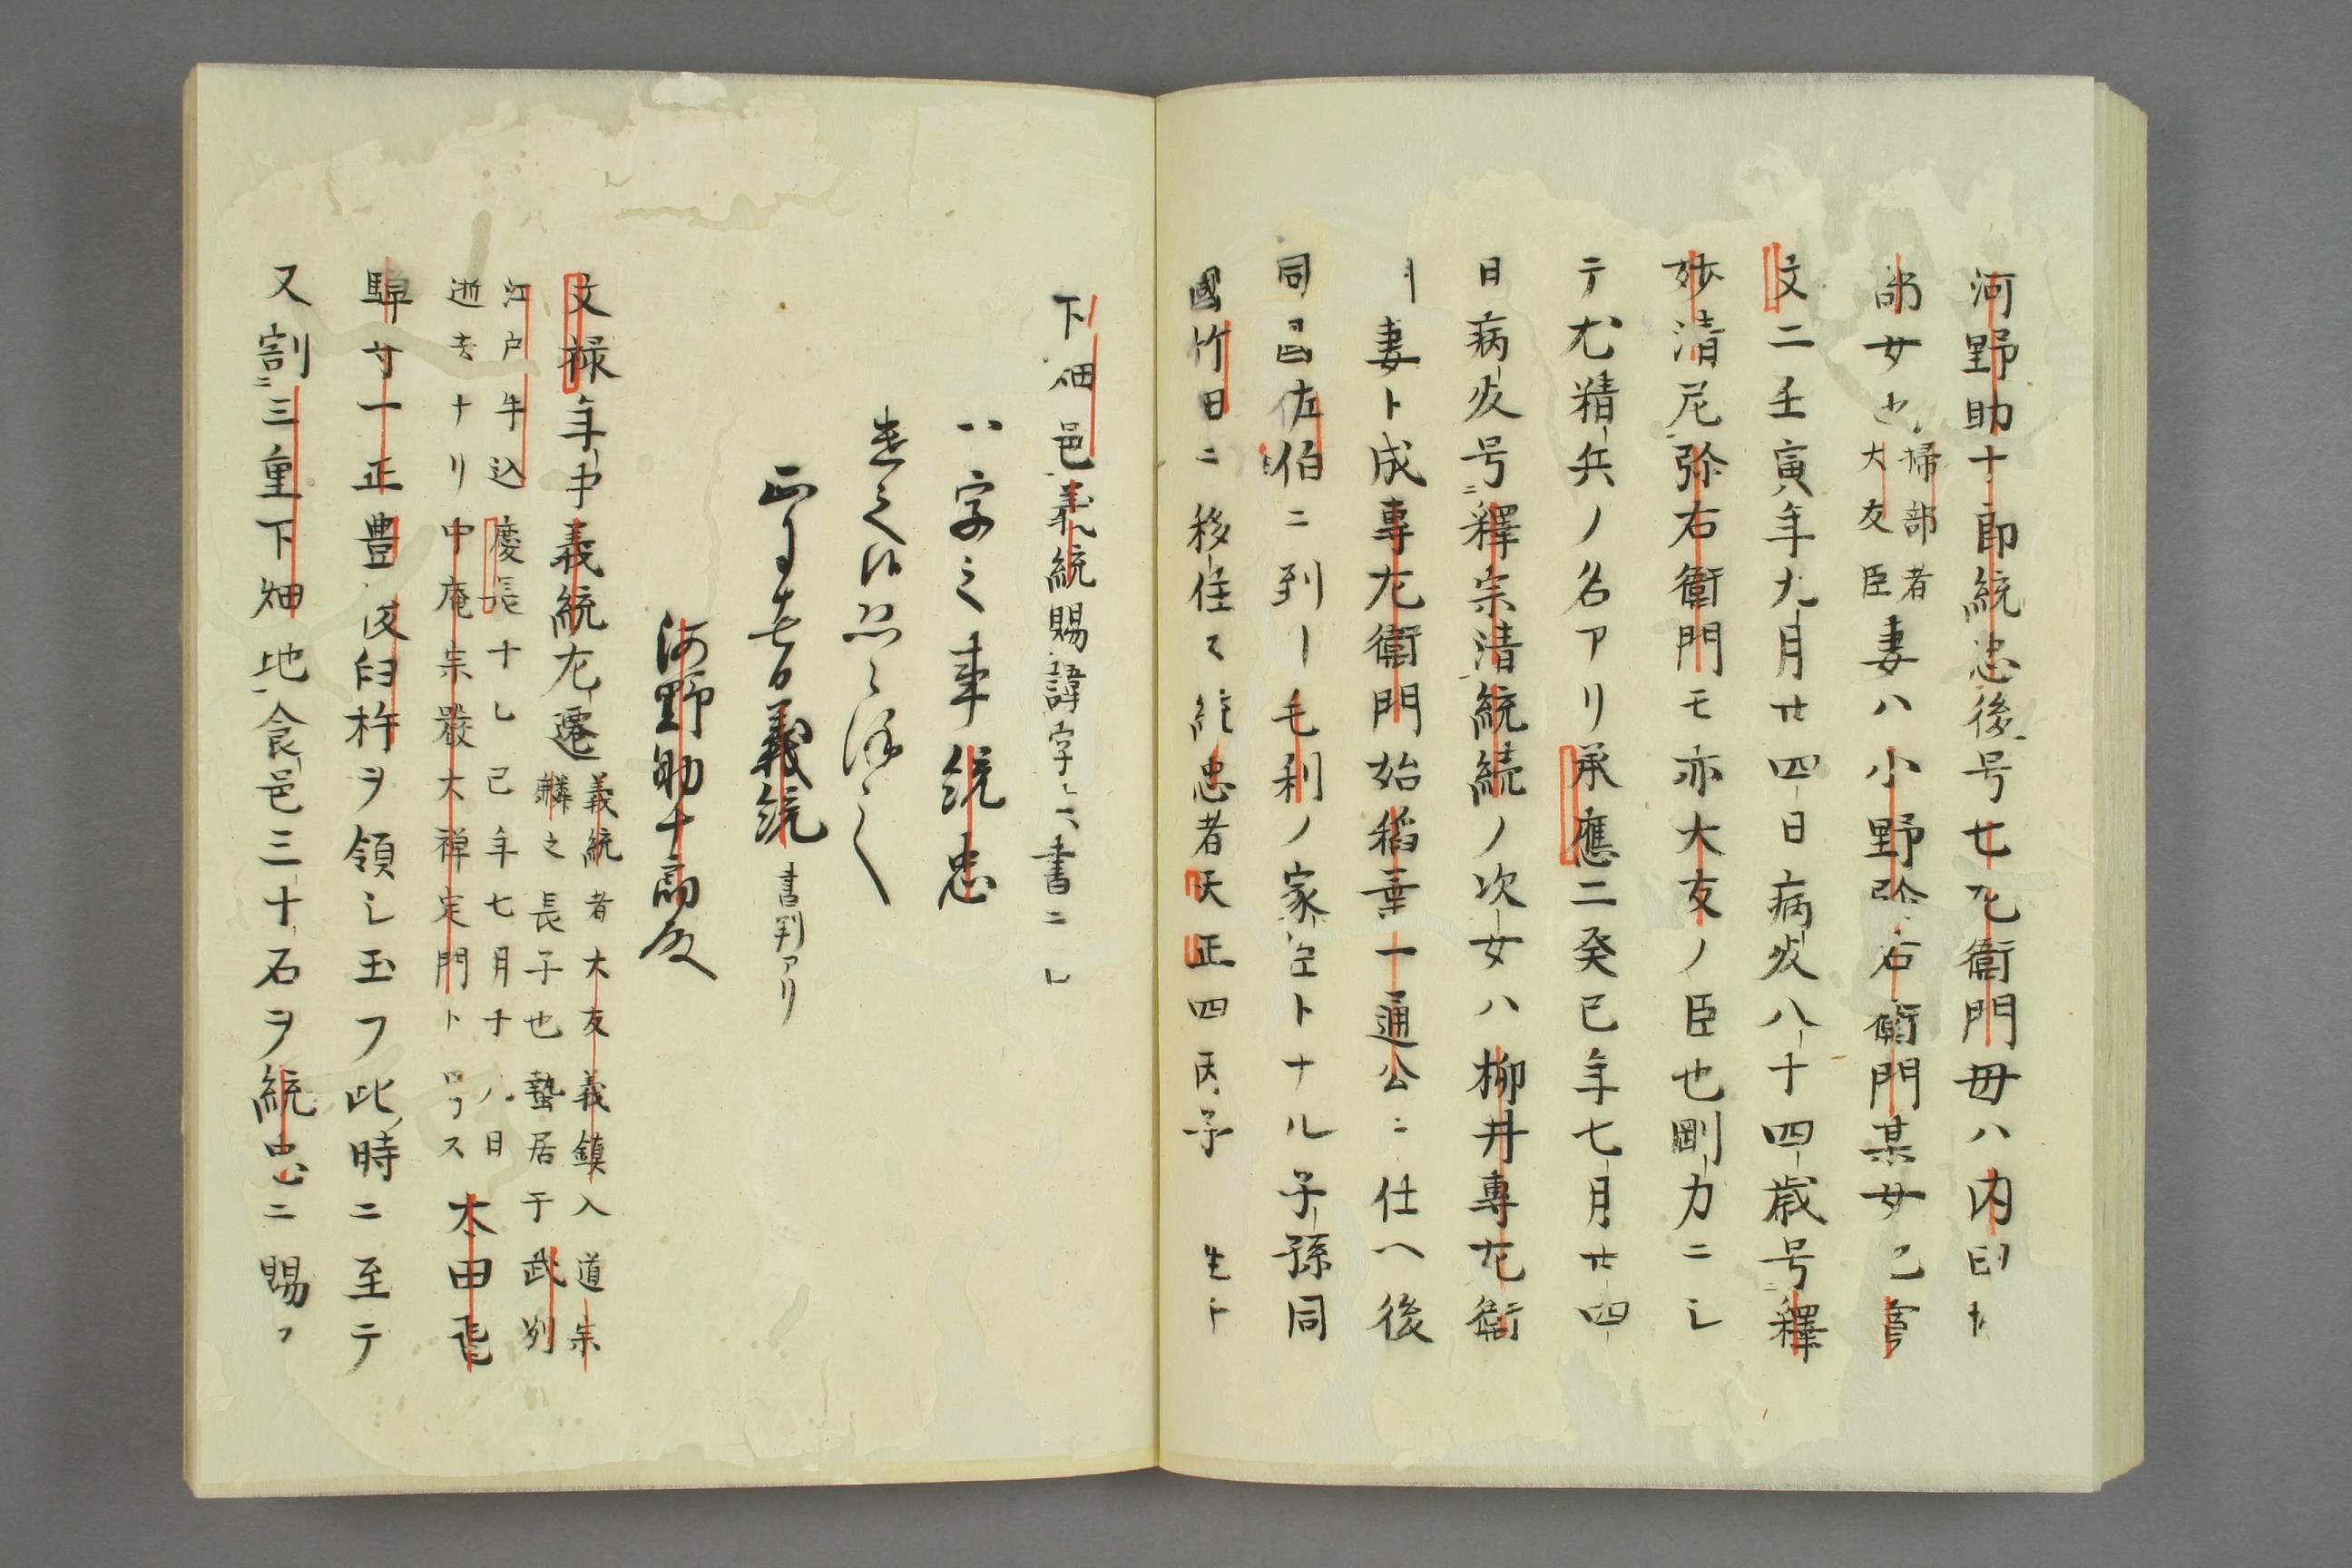 河野助十郎統忠後号七左衛門毋ハ内田
部女也掃部者
大友臣
妻ハ小野弥右衛門某女也寛
文二壬寅年九月廿四日病死八十四歳号釋
妙清尼弥右衛門モ亦大友ノ臣也剛力ニシ
テ尤精兵ノ名アリ承應二癸巳年七月廿四
日病死号釋宗清統続ノ次女ハ柳井專左衛
門妻ト成專左衛門始稻葉一通公ニ仕ヘ後
同国佐伯ニ到リ毛利ノ家臣トナル子孫同
國竹田ニ移住ス統忠者天正四丙子 生
下畑邑義統賜諱字 書ニ
八字之事統忠
遣之候恐々謹言
正月吉日義統書判アリ
河野助十郎殿
文禄年中義統左遷
義統者大友義鎮入道宗
麟之長子也蟄居于武州
江戸牛込慶長十乙巳年七月十八日
逝去ナリ中庵宗嚴大禅定門ト号ス
太田飛
騨守一正豊後臼杵ヲ領シ玉フ此時ニ至テ
又割三重下畑地食邑三十石ヲ統忠ニ賜フ